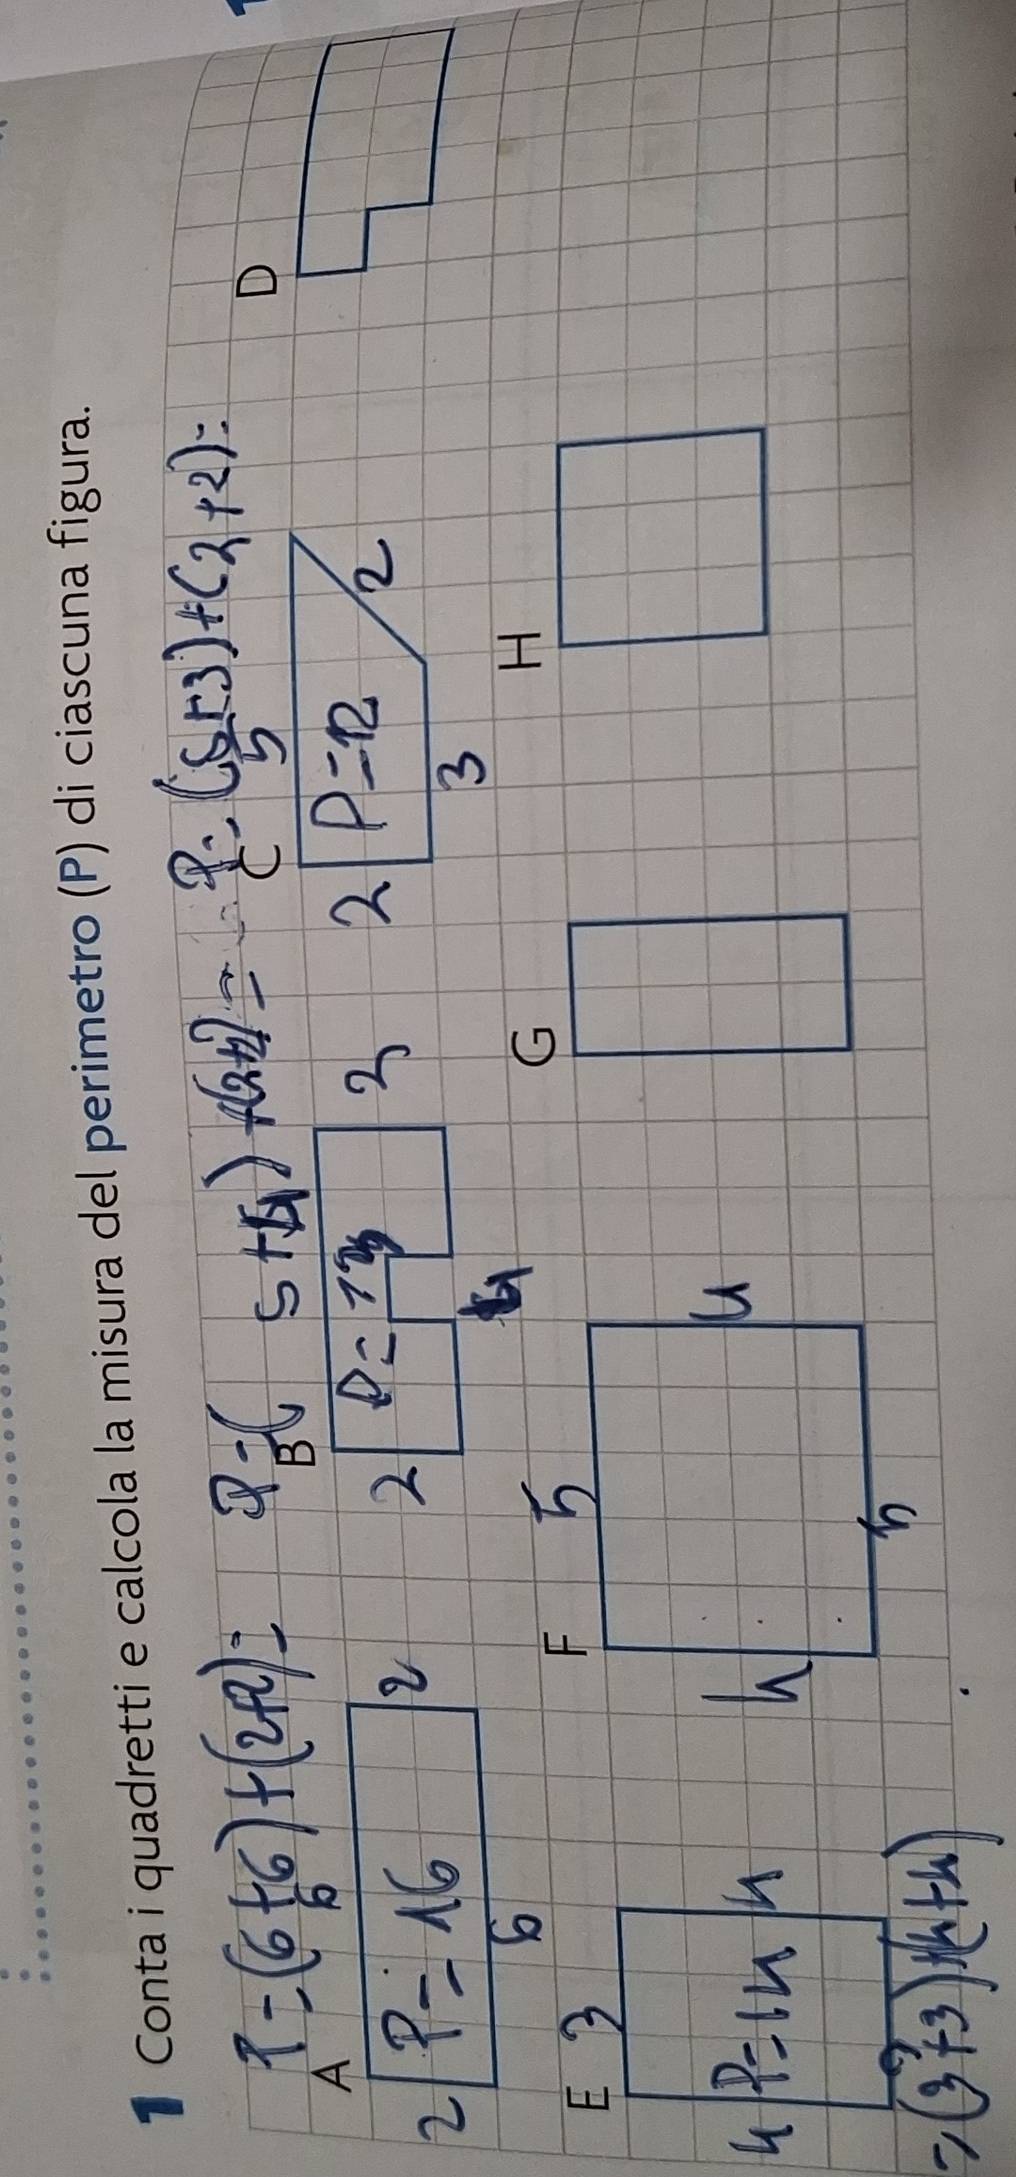 1 Conta i quadretti e calcola la misura del perimetro (P) di ciascuna figura.
P=(6+6)+(2+2)=
P=( 5+4)+(2+2)=
P=(5+3)+(2+2)=
A 6
B
C 5
D
2 P=16 2
2 P=13 2
2 P=12 2
6
4
3
E 3
F 5
G
H
4 P=14 4
4 4
3
5
=(3+3)+(4+4)